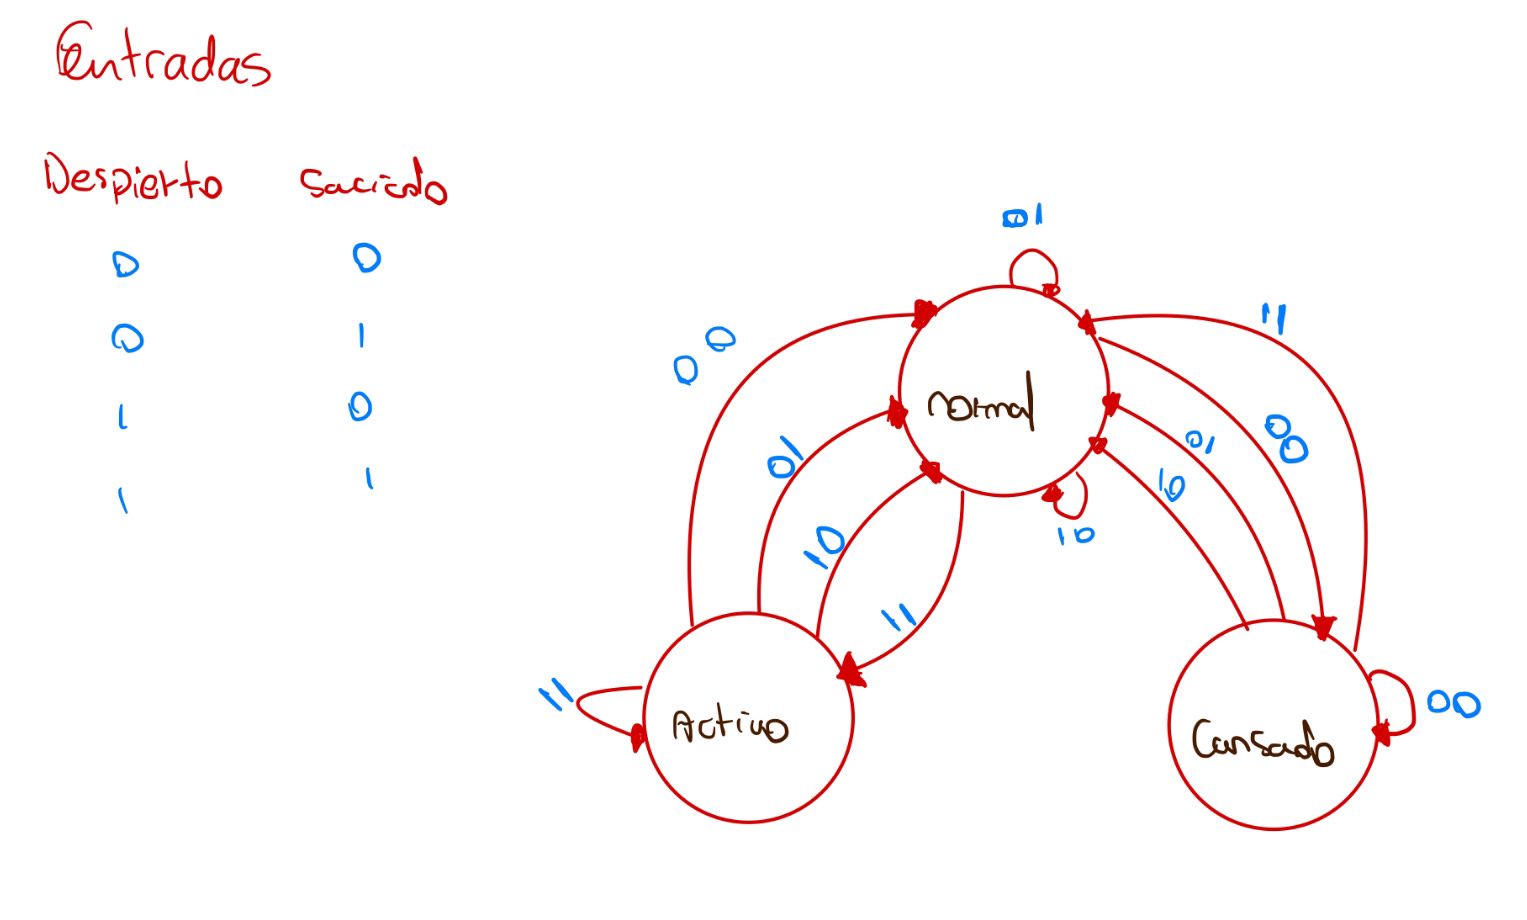 Entradas
Despierto Saciado
0 0
0 1
1 0
1 1
01
11
00
Normal
00
01
01
10
10
10
11
11
Activo
Cansado
00